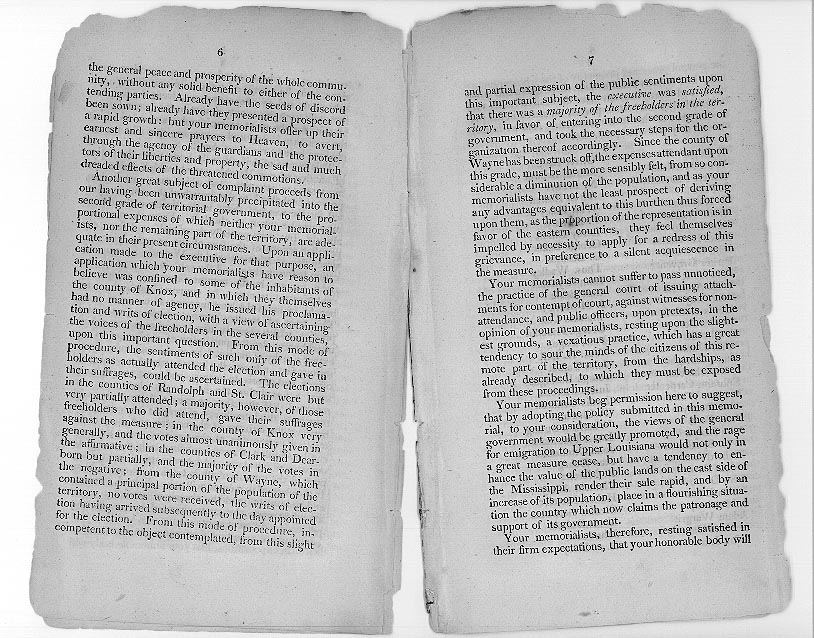 6
the general peace and prosperity of the whole commu-
nity, without any solid benefit to either of the con-
tending parties. Already have the seeds of discord
been sown; already have they presented a prospect of
a rapid growth: but your memorialists offer up their
earnest and sincere prayers to Heaven, to avert,
through the agency of the guardians and the protec-
tors of their liberties and property, the sad and much
dreaded effects of the threatened commotions.
Another great subject of complaint proceeds from
our having been unwarrantably precipitated into the
second grade of territorial government, to the pro-
portional expenses of which neither your memorial-
ists, nor the remaining part of the territory, are ade-
quate in their present circumstances. Upon an appli-
cation made to the executive for that purpose, an
application which your memorialists have reason to
believe was confined to some of the inhabitants of
the county of Knox, and in which they themselves
had no manner of agency, he issued his proclama-
tion and writs of election, with a view of ascertaining
the voices of the freeholders in the several counties,
upon this important question. From this mode of
procedure, the sentiments of such only of the free-
holders as actually attended the election and gave in
their suffrages, could be ascertained. The elections
in the counties of Randolph and St. Clair were but
very partially attended; a majority, however, of those
freeholders who did attend, gave their suffrages
against the measure; in the county of Knox very
generally, and the votes almost unanimously given in
the affirmative; in the counties of Clark and Dear-
born but partially, and the majority of the votes in
the negative; from the county of Wayne, which
contained a principal portion of the population of the
territory, no votes were received, the writs of elec-
tion having arrived subsequently to the day appointed
for the election. From this mode of procedure, in-
competent to the object contemplated, from this slight
7
and partial expression of the public sentiments upon
this important subject, the executive was satisfied,
that there was a majority of the freeholders in the ter-
ritory, in favor of entering into the second grade of
government, and took the necessary steps for the or-
ganization thereof accordingly. Since the county of
Wayne has been struck off, the expenses attendant upon
this grade, must be the more sensibly felt, from so con-
siderable a diminution of the population, and as your
memorialists have not the least prospect of deriving
any advantages equivalent to this burthen thus forced
upon them, as the proportion of the representation is in
favor of the eastern counties, they feel themselves
impelled by necessity to apply for a redress of this
grievance, in preference to a silent acquiescence in
the measure.
Your memorialists cannot suffer to pass unnoticed,
the practice of the general court of issuing attach-
ments for contempt of court, against witnesses for non-
attendance, and public officers, upon pretexts, in the
opinion of your memorialists, resting upon the slight-
est grounds, a vexatious practice, which has a great
tendency to sour the minds of the citizens of this re-
mote part of the territory, from the hardships, as
already described, to which they must be exposed
from these proceedings.
Your memorialists beg permission here to suggest,
that by adopting the policy submitted in this memo-
rial, to your consideration, the views of the general
government would be greatly promoted, and the rage
for emigration to Upper Louisiana would not only in
a great measure cease, but have a tendency to en-
hance the value of the public lands on the east side of
the Mississippi, render their sale rapid, and by an
increase of its population, place in a flourishing situa-
tion the country which now claims the patronage and
support of its government.
Your memorialists, therefore, resting satisfied in
their firm expectations, that your honorable body will